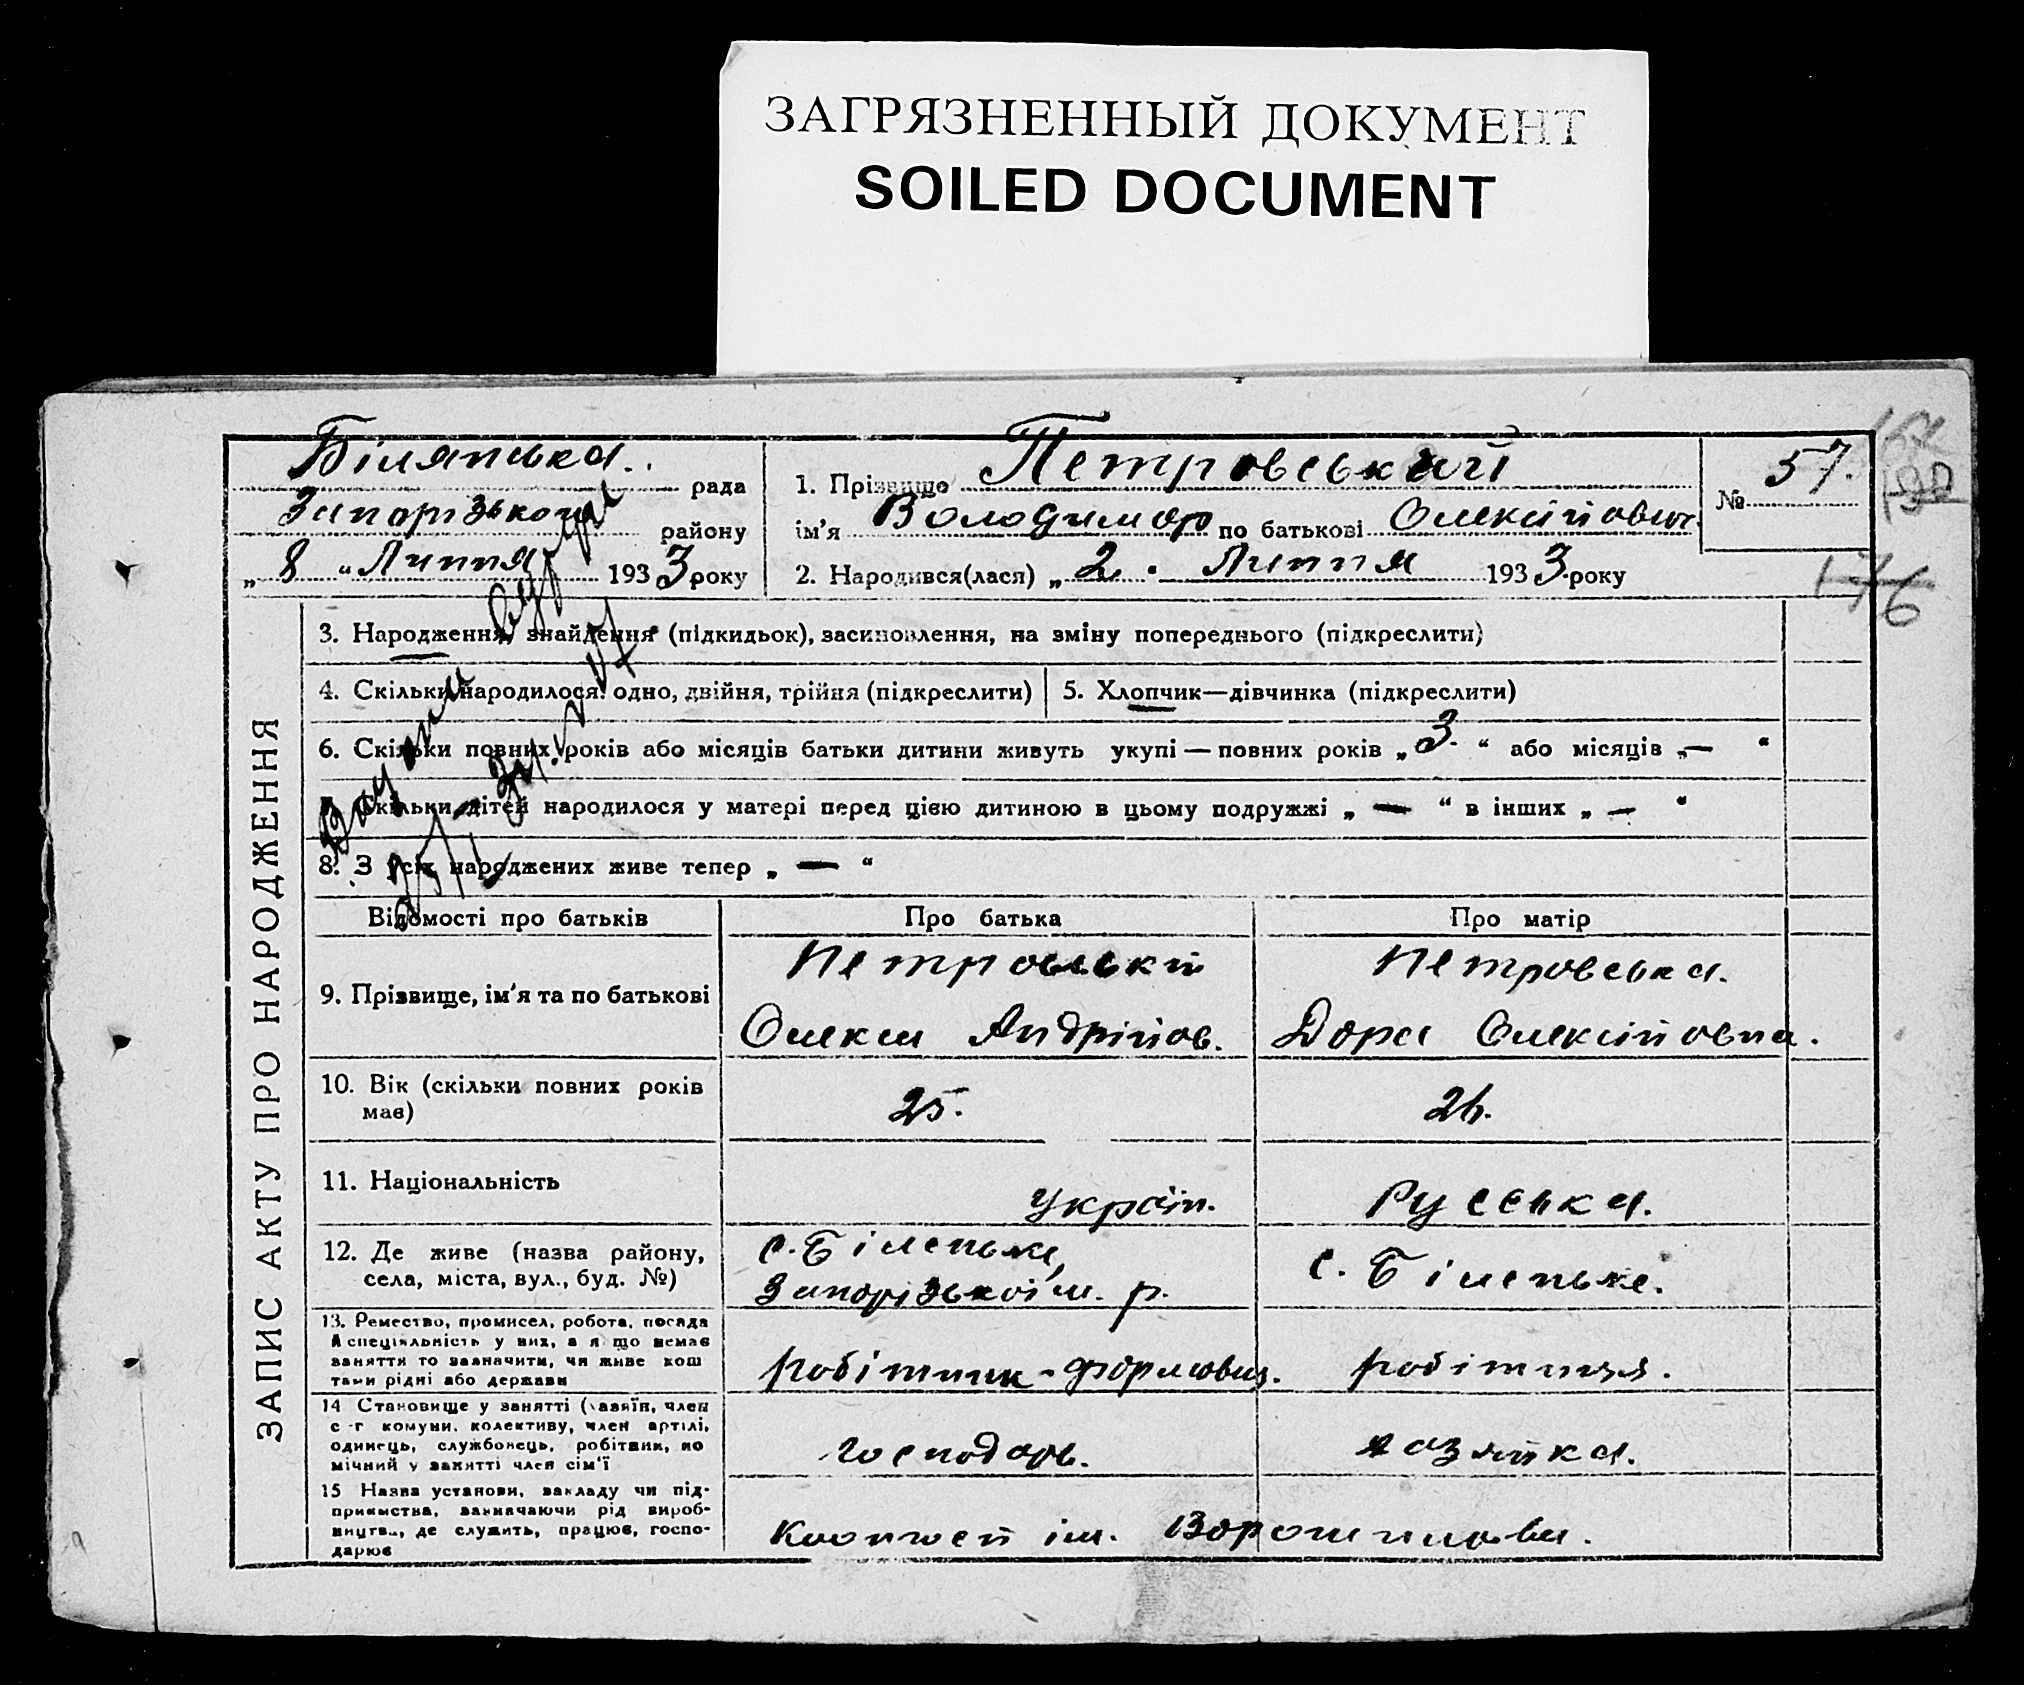 ЗАГРЯЗНЕННЫЙ ДОКУМЕНТ
SOILED DOCUMENT
Білянська. рада
Запорізького району
„ 8 “ Липня 1933 року
1. Прізвище Петровський
ім’я Володимир по батькові Олексійович.
2. Народився(лася) „ 2 . Липня 1933. року
№ 57.
190
176
ЗАПИС АКТУ ПРО НАРОДЖЕННЯ
3. Народження, знайдення (підкидьок), засиновлення, на зміну попереднього (підкреслити)
4. Скільки народилося: одно, двійня, трійня (підкреслити)
5. Хлопчик—дівчинка (підкреслити)
6. Скільки повних років або місяців батьки дитини живуть укупі — повних років „ 3. “ або місяців „ — “
Скільки дітей народилося у матері перед цією дитиною в цьому подружжі „ — “ в інших „ — “
8. З усіх народжених живе тепер „ — “
Відомості про батьків
Про батька
Про матір
9. Прізвище, ім’я та по батькові
Петровській
Олексій Андрійов.
Петровська.
Дора Олексійовна.
10. Вік (скільки повних років має)
25.
26.
11. Національність
Україн.
Русська.
12. Де живе (назва району,
села, міста, вул., буд. №)
с. Біленьке,
р.
с. Біленьке.
13. Ремество, промисел, робота, посада
й спеціяльність у них, а якщо немає
заняття то зазначити, чи живе кош
тами рідні або держави
робітник - формовщ.
робітниця.
14 Становище у занятті (хазяїн, член
с-г комуни, колективу, член артілі,
одинець, службовець, робітник, по
мічний у занятті член сім’ї
господарь.
хазяйка.
15 Назва установи, закладу чи під-
приємства, зазначаючи рід вироб-
ництва, де служить, працює, госпо-
дарює
ім. Ворошилова.